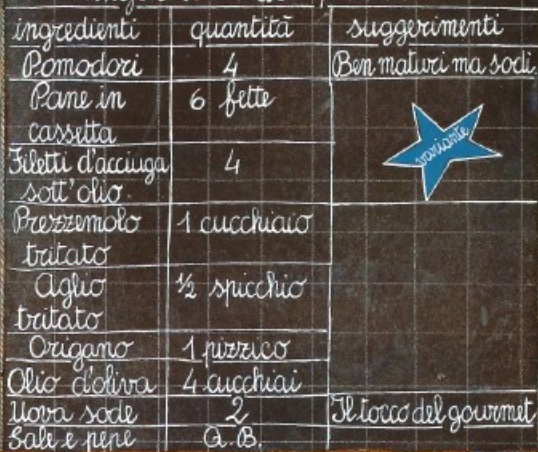 ingredienti quantità suggerimenti
Pomodori 4 Ben maturi ma sodi
Pane in 6 fette
cassetta
variante
Filetti d'acciuga 4
sott'olio.
Prezzemolo 1 cucchiaio
tritato
Aglio ½ spicchio
tritato
Origano 1 pizzico
Olio d'oliva 4 cucchiai
Uova sode 2 Il tocco del gourmet
Sale e pepe Q.B.